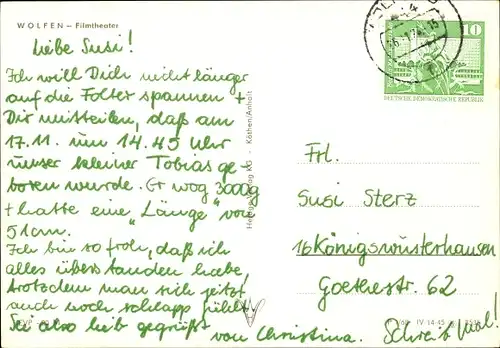 WOLFEN – Filmtheater
Liebe Susi!
Ich will Dich nicht länger
auf die Folter spannen +
Dir mitteilen, daß am
17.11. um 14.45 Uhr
unser kleiner Tobias ge
boren wurde. Er wog 3000g
+ hatte eine „Länge" von
51cm.
Ich bin so froh, daß ich
alles überstanden habe,
trotzdem man sich jetzt
auch noch schlapp fühlt.
Sei also lieb gegrüßt
von Christina.
Schreib mal!
Köthen/Anhalt
10
DEUTSCHE DEMOKRATISCHE REPUBLIK
Frl.
Susi Sterz
16 Königswusterhausen
Goethestr. 62
IV-14-45